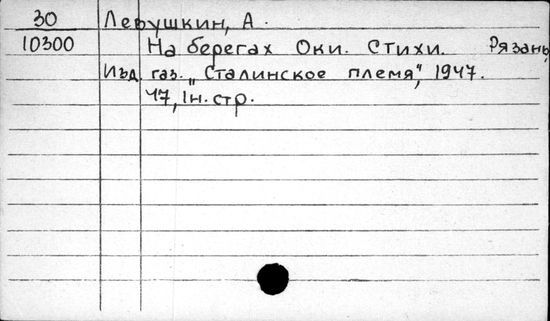 30 Левушкин, А.
10300 На берегах Оки. Стихи. Рязань,
Изд. газ. „Сталинское племя", 1947.
47, 1н. стр.